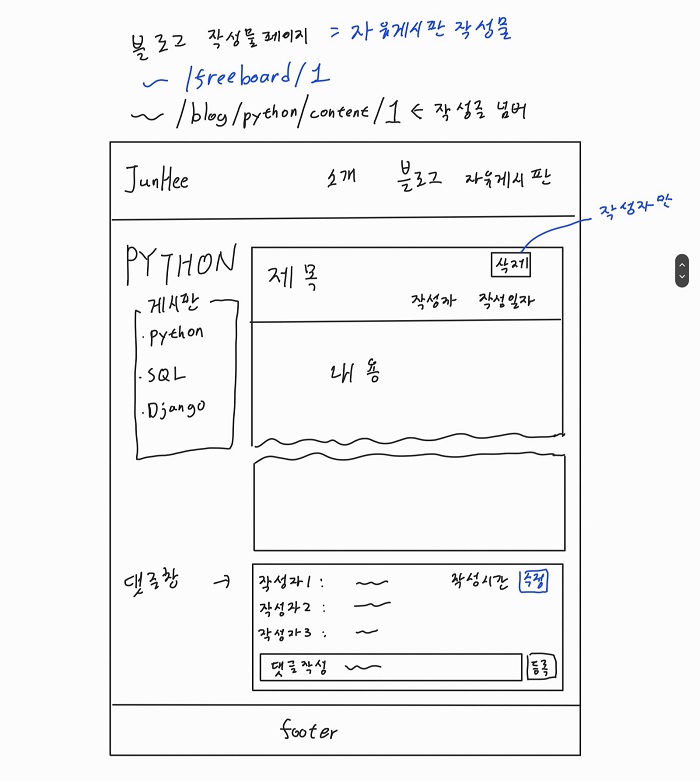 블로그 작성물 페이지 = 자유게시판 작성물
~ /freeboard/1
~ /blog/python/content/1 ← 작성글 넘버
JunHee 소개 블로그 자유게시판
작성자만
PYTHON
게시판
· Python
· SQL
· Django
제목 삭제
작성자 작성일자
내용
댓글창 →
작성자1 : 작성시간 수정
작성자2 :
작성자3 :
댓글작성 등록
footer